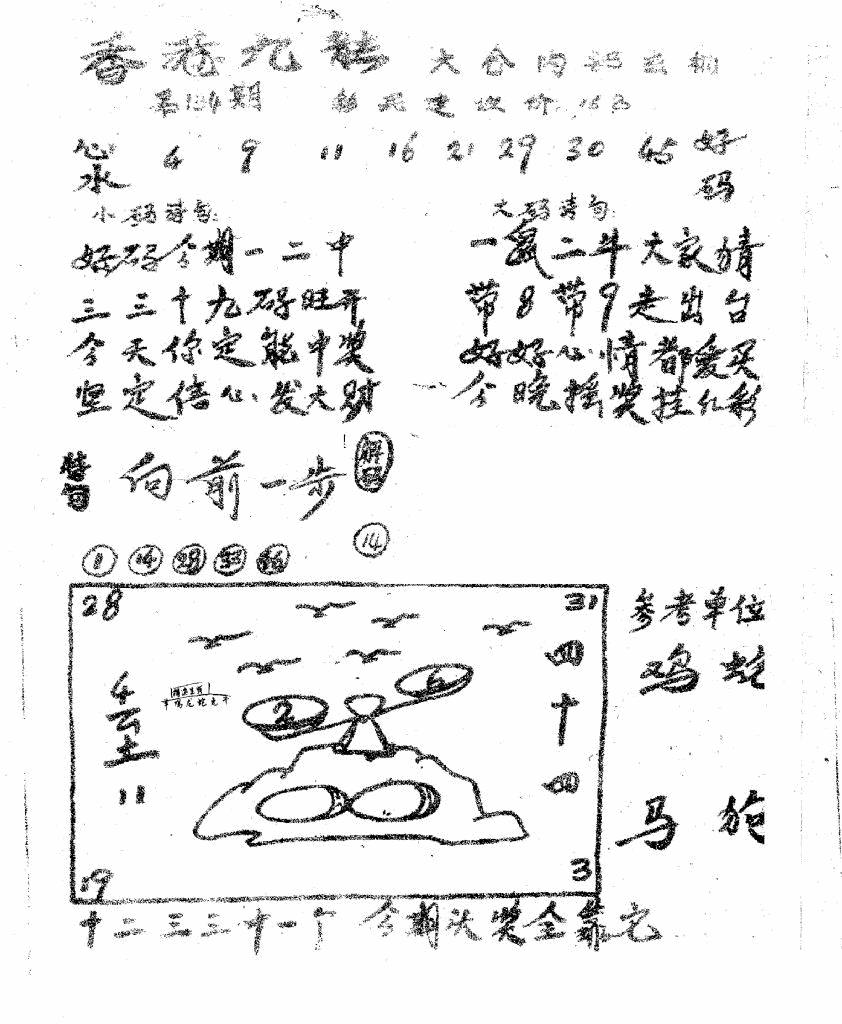 香港九龍 大会内部玄机
第134期
心水 4 9 11 16 21 29 30 45 好码
小码诗句: 大码诗句:
好码今期一二中
三三十九码旺开
今天你定能中奖
坚定信心发大财
一鼠二牛大家猜
带8带9走出台
好好心情都爱买
今晚摇奖挂红彩
特句 向前一步 解码
14
1 14 28 33 46
28 31
4 11
四十四
2 6
19 3
参考单位
鸡 蛇
马 狗
十二三三十一个 今期头奖全靠它